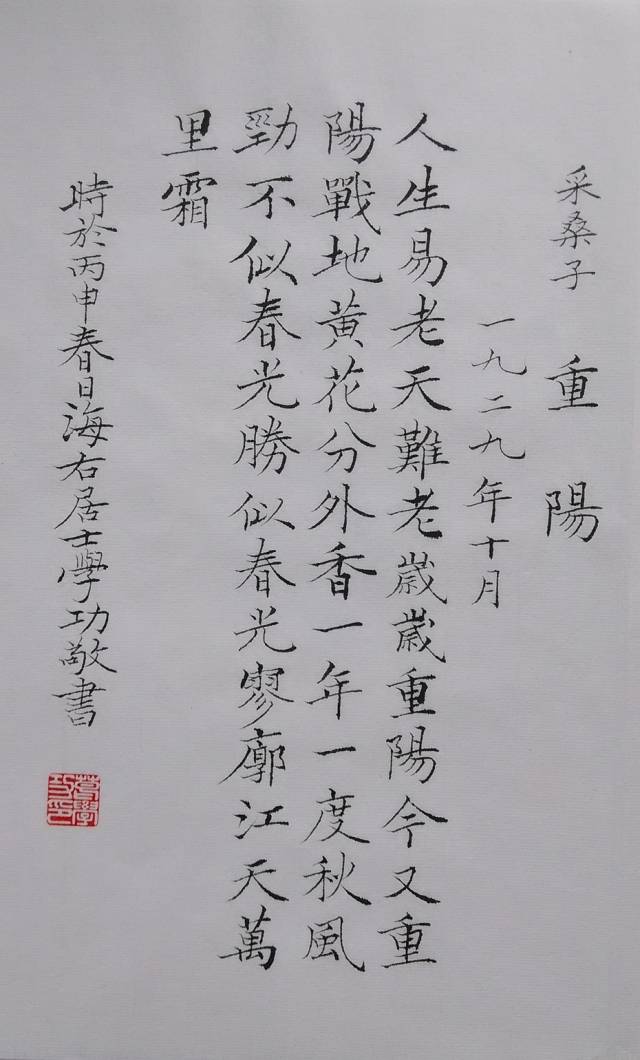 采桑子 重陽
一九二九年十月
人生易老天難老歲歲重陽今又重
陽戰地黃花分外香一年一度秋風
勁不似春光勝似春光寥廓江天萬
里霜
時於丙申春日海右居士學功敬書